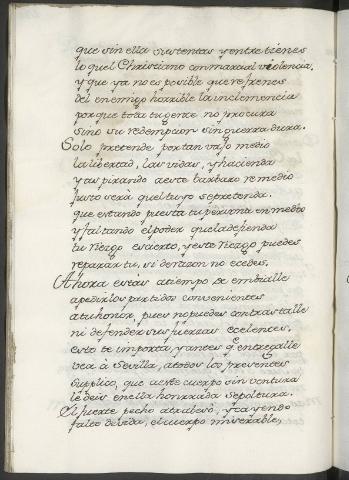 que sin ella sustentas y entretienes
lo quel Christiano con marcial violencia.
y que ya no es posible que refrenes
del enemigo horrible la inclemencia
porque toda tu gente no procura
sino su redempcion sin guerra dura.
Solo pretende por tan vajo medio
la libertad, las vidas, y hacienda
y aspirando a este barbaro remedio
justo será quel tuyo se pretenda.
que estando puesta tu persona en medio
y faltando el poder que la defienda
tu riezgo es cierto, y este riezgo puedes
reparar tu, si de razon no ecedes.
Ahora estas a tiempo de embialle
a pedir los partidos convenientes
a tu honor, pues no puedes contrastalle
ni defender sus fuerzas ecelentes.
esto te importa, y antes qe entregalle
vea à Sevilla, a todos los presentes
suplico, que a este cuerpo sin ventura
le deis en ella honrrada sepoltura.
El fuerte pecho atrabesó, y cayendo
falto de vida, el cuerpo miserable,